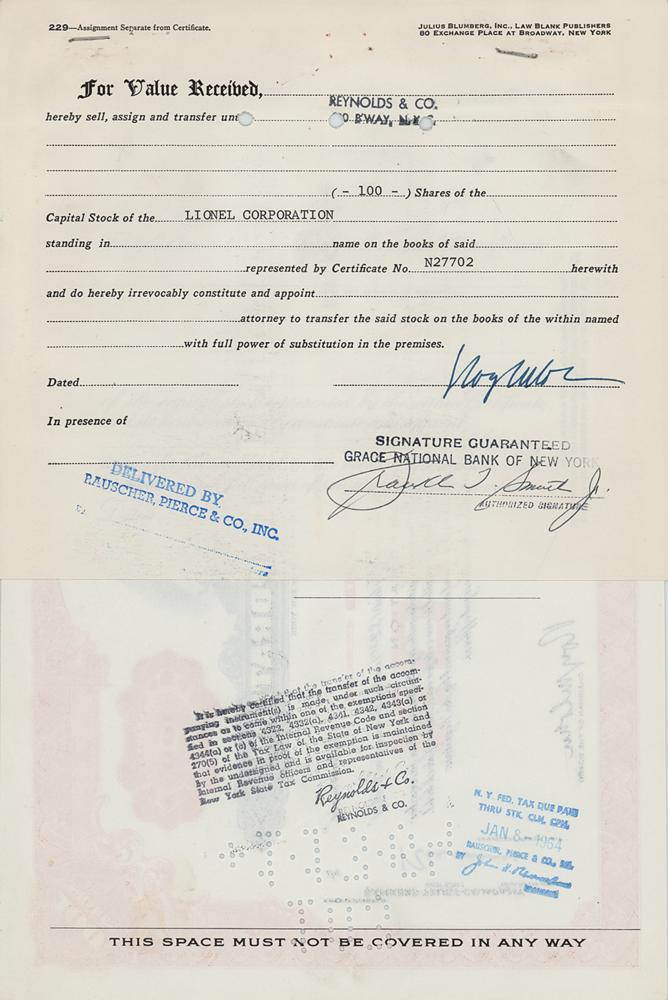 229—Assignment Separate from Certificate.
JULIUS BLUMBERG, INC., LAW BLANK PUBLISHERS
80 EXCHANGE PLACE AT BROADWAY, NEW YORK
For Value Received,
REYNOLDS & CO.
hereby sell, assign and transfer unto
0 B'WAY, N.Y.C.
( - 100 - ) Shares of the
Capital Stock of the LIONEL CORPORATION
standing in name on the books of said
represented by Certificate No. N27702 herewith
and do hereby irrevocably constitute and appoint
attorney to transfer the said stock on the books of the within named
with full power of substitution in the premises.
Dated
In presence of
SIGNATURE GUARANTEED
GRACE NATIONAL BANK OF NEW YORK
AUTHORIZED SIGNATURE
DELIVERED BY
RAUSCHER, PIERCE & CO., INC.
It is hereby certified that the transfer of the accom-
panying instrument(s) is made, under such circum-
stances as to come within one of the exemptions speci-
fied in sections 4323, 4332(a), 4341, 4342, 4343(a) or
4344(a) or (c) of the Internal Revenue Code and section
270(5) of the Tax Law of the State of New York and
that evidence in proof of the exemption is maintained
by the undersigned and is available for inspection by
Internal Revenue officers and representatives of the
New York State Tax Commission.
Reynolds & Co.
REYNOLDS & CO.
N. Y. FED. TAX DUE PAID
THRU STK. CLR. CPN.
JAN 8 - 1964
RAUSCHER, PIERCE & CO., INC.
BY
THIS SPACE MUST NOT BE COVERED IN ANY WAY